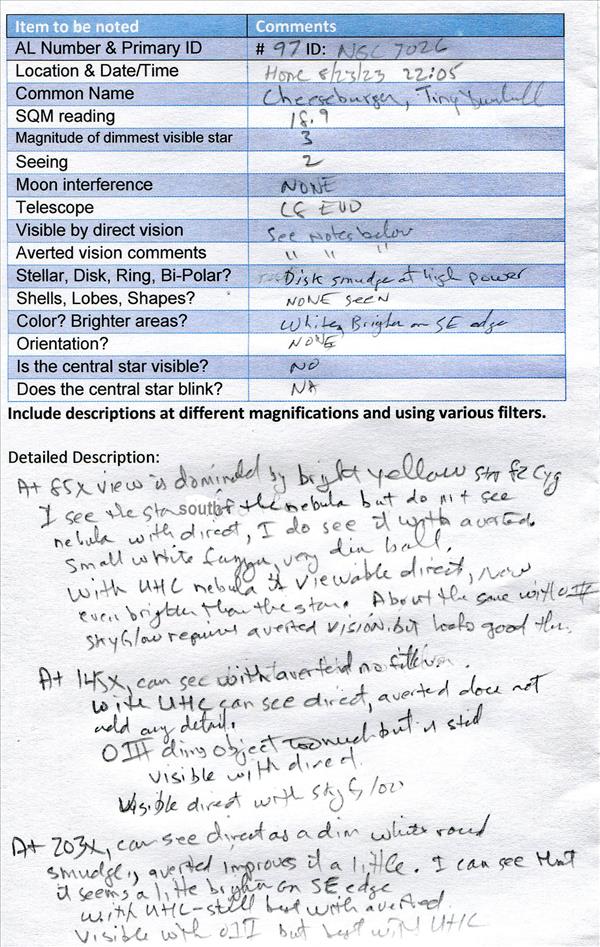 Item to be noted Comments
AL Number & Primary ID # 97 ID: NGC 7026
Location & Date/Time Home 8/23/23 22:05
Common Name Cheeseburger, Tiny Dumbell
SQM reading 18.9
Magnitude of dimmest visible star 3
Seeing 2
Moon interference NONE
Telescope C8 EVO
Visible by direct vision See Notes below
Averted vision comments " " "
Stellar, Disk, Ring, Bi-Polar? Disk smudge at High power
Shells, Lobes, Shapes? NONE seen
Color? Brighter areas? White, Brighter on SE edge
Orientation? NONE
Is the central star visible? NO
Does the central star blink? NA
Include descriptions at different magnifications and using various filters.
Detailed Description:
At 85x view is dominated by bright yellow star 62 Cyg
I see the star south of the nebula but do not see
nebula with direct, I do see it with averted.
Small white fuzzy, very dim ball.
With UHC nebula is viewable direct, Now
even brighter than the star. About the same with OIII
SkyGlow requires averted VISION but looks good then.
At 145x, can see with averted no filter.
With UHC can see direct, averted does not
add any detail.
OIII dims object too much but is still
visible with direct.
Visible direct with SkyGlow
At 203x, can see direct as a dim white round
smudge, averted improves it a little. I can see that
it seems a little brighter on SE edge
with UHC - still best with averted.
Visible with OIII but best with UHC